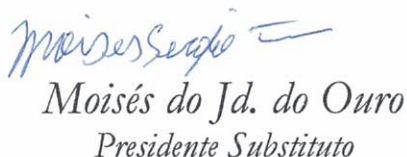 Moises Sergio
Moisés do Jd. do Ouro
Presidente Substituto